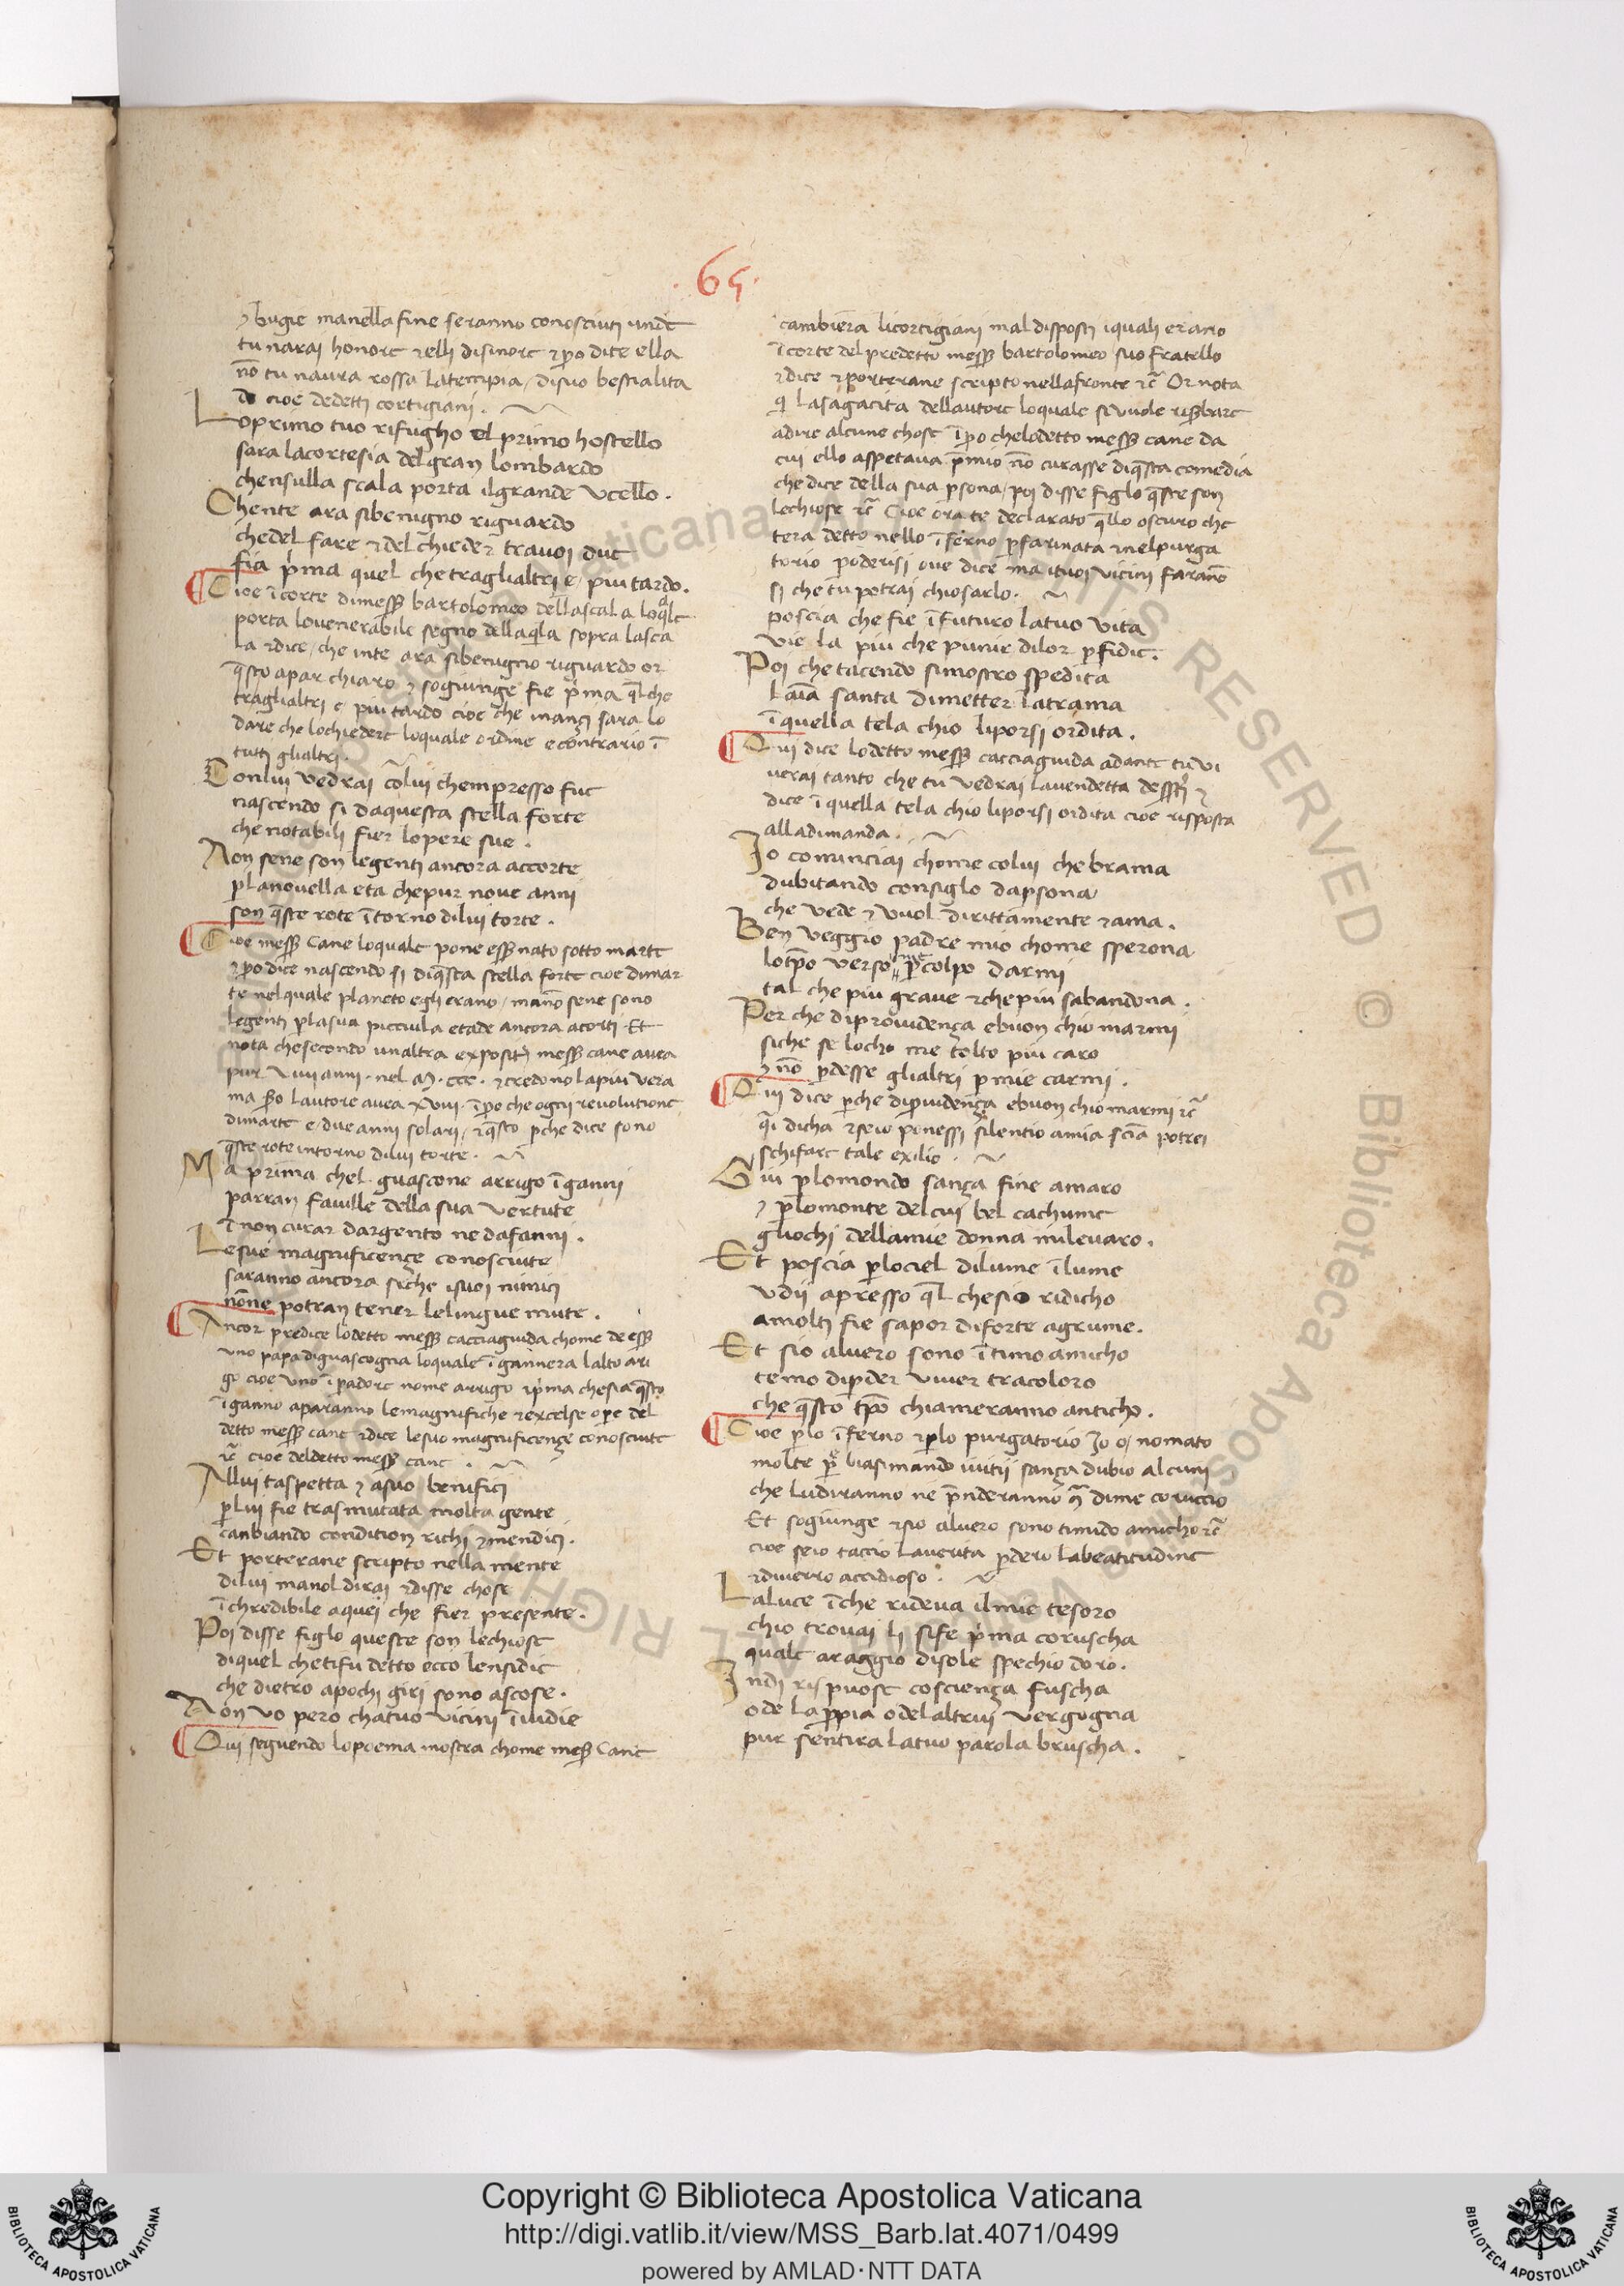 .65.
⁊ bugie manella fine seranno conosciuti unde
tu narai honore ⁊ elli disinore ⁊ ꝑo dice ella
nō tu naura rossa latempia / disuo bestialita
de cioe dedetti cortigiani .
Loprimo tuo rifugho el primo hostello
sara lacortesia del gran lombardo
chensulla scala porta ilgrande vcello .
Chente ara sibenigno riguardo
chedel fare ⁊ del chieder travoi due
fia pͥma quel che traglialtri e / piu tardo .
Cioe ī corte dimess̄ bartolomeo dellascala loqͣle
porta lovenerabile segno dellaqͥla sopra lasca
la ⁊ dice / che inte ara sibenigno riguardo or
q̄sto apar chiaro ⁊ sogiunge fie pͥma q̄l che
traglialtri e piu tardo cioe che inanci sara lo
dare che lochiedere loquale ordine e contrario ī
tutti glialtri .
Conlui vedrai colui chempresso fue
nascendo si daquesta stella forte
che notabili fier lopere sue .
Non sene son legenti ancora accorte
ꝑ lanovella eta chepur nove anni
son q̄ste rote ītorno dilui torte .
Cioe mess̄ Cane loquale pone ess̄ nato sotto marte
⁊ ꝑo dice nascendo si diq̄sta stella forte cioe dimar
te nelquale planeto egli erano / manō sene sono
legenti ꝑ lasua picciula etade ancora acorti Et
nota chesecondo unaltra expositiō mess̄ cane avea
pur viiii anni . nel M . ccc . ⁊ credono lapiu vera
ma ꝑo lautore avea xviii . īꝑo che ogni revolutione
dimarte e / due anni solari / ⁊ q̄sto ꝑche dice sono
q̄ste rote intorno dilui torte .
Ma prima chel guascone arrigo īganni
parran faville della sua vertute
ī non curar dargento ne dafanni .
Lesue magnificençe conosciute
saranno ancora siche isuoi nimici
nōne potran tener lelingue mute .
Ancor predice lodetto mess̄ cacciaguida chome de ess̄
uno papa diguascogna loquale īgannera lalto ari
go cioe uno īꝑadore nome arrigo ⁊ pͥma chesia q̄sto
īganno aparanno lemagnifiche ⁊ excelse oꝑe del
detto mess̄ cane ⁊ dice lesue magnificençe conosciute
⁊c̄ cioe deldetto mess̄ cane .
Allui taspetta ⁊ asuo benifici
ꝑ lui fie trasmutata molta gente
canbiando condition richi ⁊ mendici .
Et porterane scripto nella mente
dilui manol dirai ⁊ disse chose
īchredibile aquei che fier presente .
Poi disse figlo queste son lechiose
diquel chetifu detto ecco lensidie
che dietro apochi giri sono ascose .
Non vo pero chatuo vicini īvidie
Qui seguendo lopoema mostra chome mess̄ Cane
cambiera licortigiani mal disposti iquali erano
ī corte del predetto mess̄ bartolomeo suo fratello
⁊ dice ⁊ porterane scripto nellafronte ⁊c̄ Or nota
qͥ lasagacita dellautore loquale sivuole risꝑbare
adire alcune chose īꝑo chelodetto mess̄ cane da
cui ello aspetava p̄mio nō curasse diq̄sta comedia
che dice della sua ꝑsona / poi disse figlo q̄ste son
lechiose ⁊c̄ Cioe ora te declarato q̄llo oscuro che
tera detto nello īferno ꝑ farinata ⁊ nelpurga
torio ꝑ oderisi ove dice ma ituoi vicini farannō
si che tu potrai chiosarlo .
poscia che fie īfuturo latuo vita
vie la piu che punir dilor ꝑfidie .
Poi che tacendo simostro spedita
laīa santa dimetter latrama
ī quella tela chio liporsi ordita .
Qui dice lodetto mess̄ cacciaguida adante tu vi
verai tanto che tu vedrai lavendetta dess̄ti ⁊
dice ī quella tela chio liporsi ordita cioe risposta
alladimanda .
Io cominciai chome colui che brama
dubitando consiglo daꝑsona
che vede ⁊ vuol dirittamente ⁊ ama .
Ben veggio padre mio chome sperona
lotꝑo verso me ꝑ colpo darmi
tal che piu grave ⁊ chepiu sabandona .
Per che diprovidença ebuon chio marmi
siche se locho me tolto piu caro
⁊ nō ꝑdesse glialtri ꝑ mie carmi .
Qui dice ꝑche diꝓvidença ebuon chio marmi ⁊c̄
qͣi dicha ⁊ seio ponessi silentio amia sciā potrei
schifare tale exilio .
Giu ꝑ lomondo sança fine amaro
⁊ ꝑ lomonte delcui bel cachume
gliochi dellamie donna milevaro .
Et poscia ꝑ lociel dilume īlume
vdii apresso q̄l chesio ridicho
amolti fie sapor diforte agrume .
Et sio alvero sono ītimo amicho
temo diꝑder viver tracoloro
che q̄sto tꝑo chiameranno anticho .
Cioe ꝑ lo īferno ⁊ ꝑ lo purgatorio Io o / nomato
molte ꝑē biasimando ivitii sança dubio alcuni
che ludiranno ne p̄nderanno ꝯ dime coruccio
Et sogiunge ⁊ sio alvero sono timido amicho ⁊c̄
cioe seio taccio laverita ꝑdero labeatitudine
⁊ diverro accidioso .
Laluce īche rideva ilmie tesoro
chio trovai li sife pͥma coruscha
quale araggio disole spechio doro .
Indi rispuose coscienҫa fuscha
ode laꝓpia odelaltrui vergogna
pur sentira latuo parola bruscha .
Copyright © Biblioteca Apostolica Vaticana
http://digi.vatlib.it/view/MSS_Barb.lat.4071/0499
powered by AMLAD·NTT DATA
BIBLIOTECA APOSTOLICA VATICANA
BIBLIOTECA APOSTOLICA VATICANA